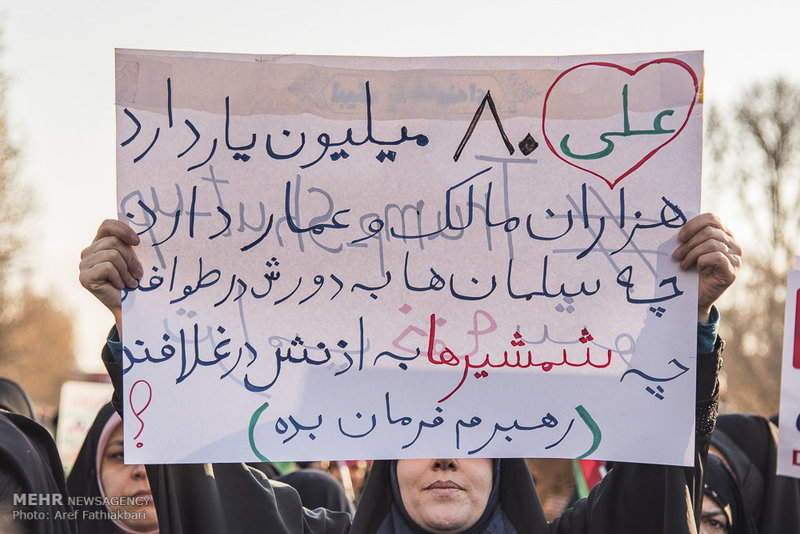 علی ۸۰ میلیون یار دارد
هزاران مالک و عمار دارد
چه سلمان ها به دورش در طوافند
چه شمشیرها به اذنش در غلافند
(رهبرم فرمان بده)
؟
MEHR NEWSAGENCY
Photo: Aref Fathiakbari